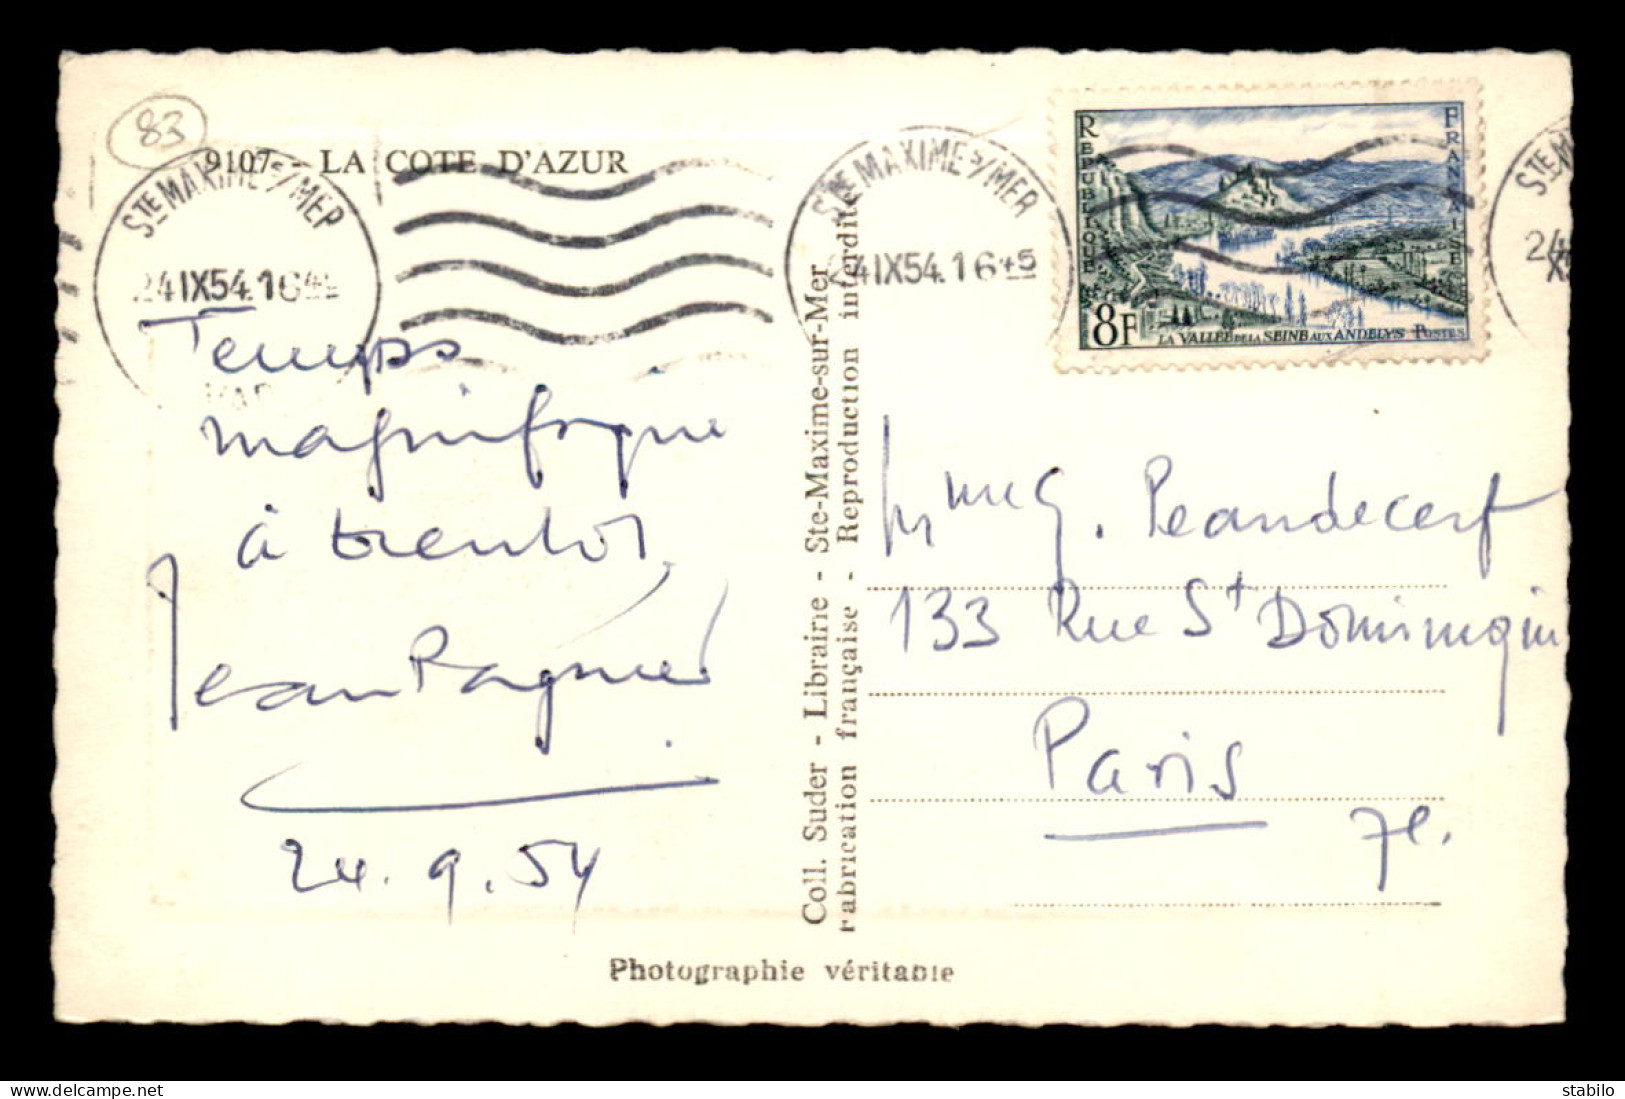 83
9107 - LA COTE D'AZUR
STE MAXIME S/MER
24 IX 54.16 45
Temps
magnifique
à bientôt
Jean Pagnier
24.9.54
Coll. Suder - Librairie - Ste-Maxime-sur-Mer
Fabrication française - Reproduction interdite
Photographie véritable
STE MAXIME S/MER
24 IX 54.16 45
REPUBLIQUE
FRANÇAISE
8F
LA VALLEE DE LA SEINE AUX ANDELYS POSTES
24
Mme G. Peandecerf
133 Rue St Dominique
Paris
7e.
stabilo